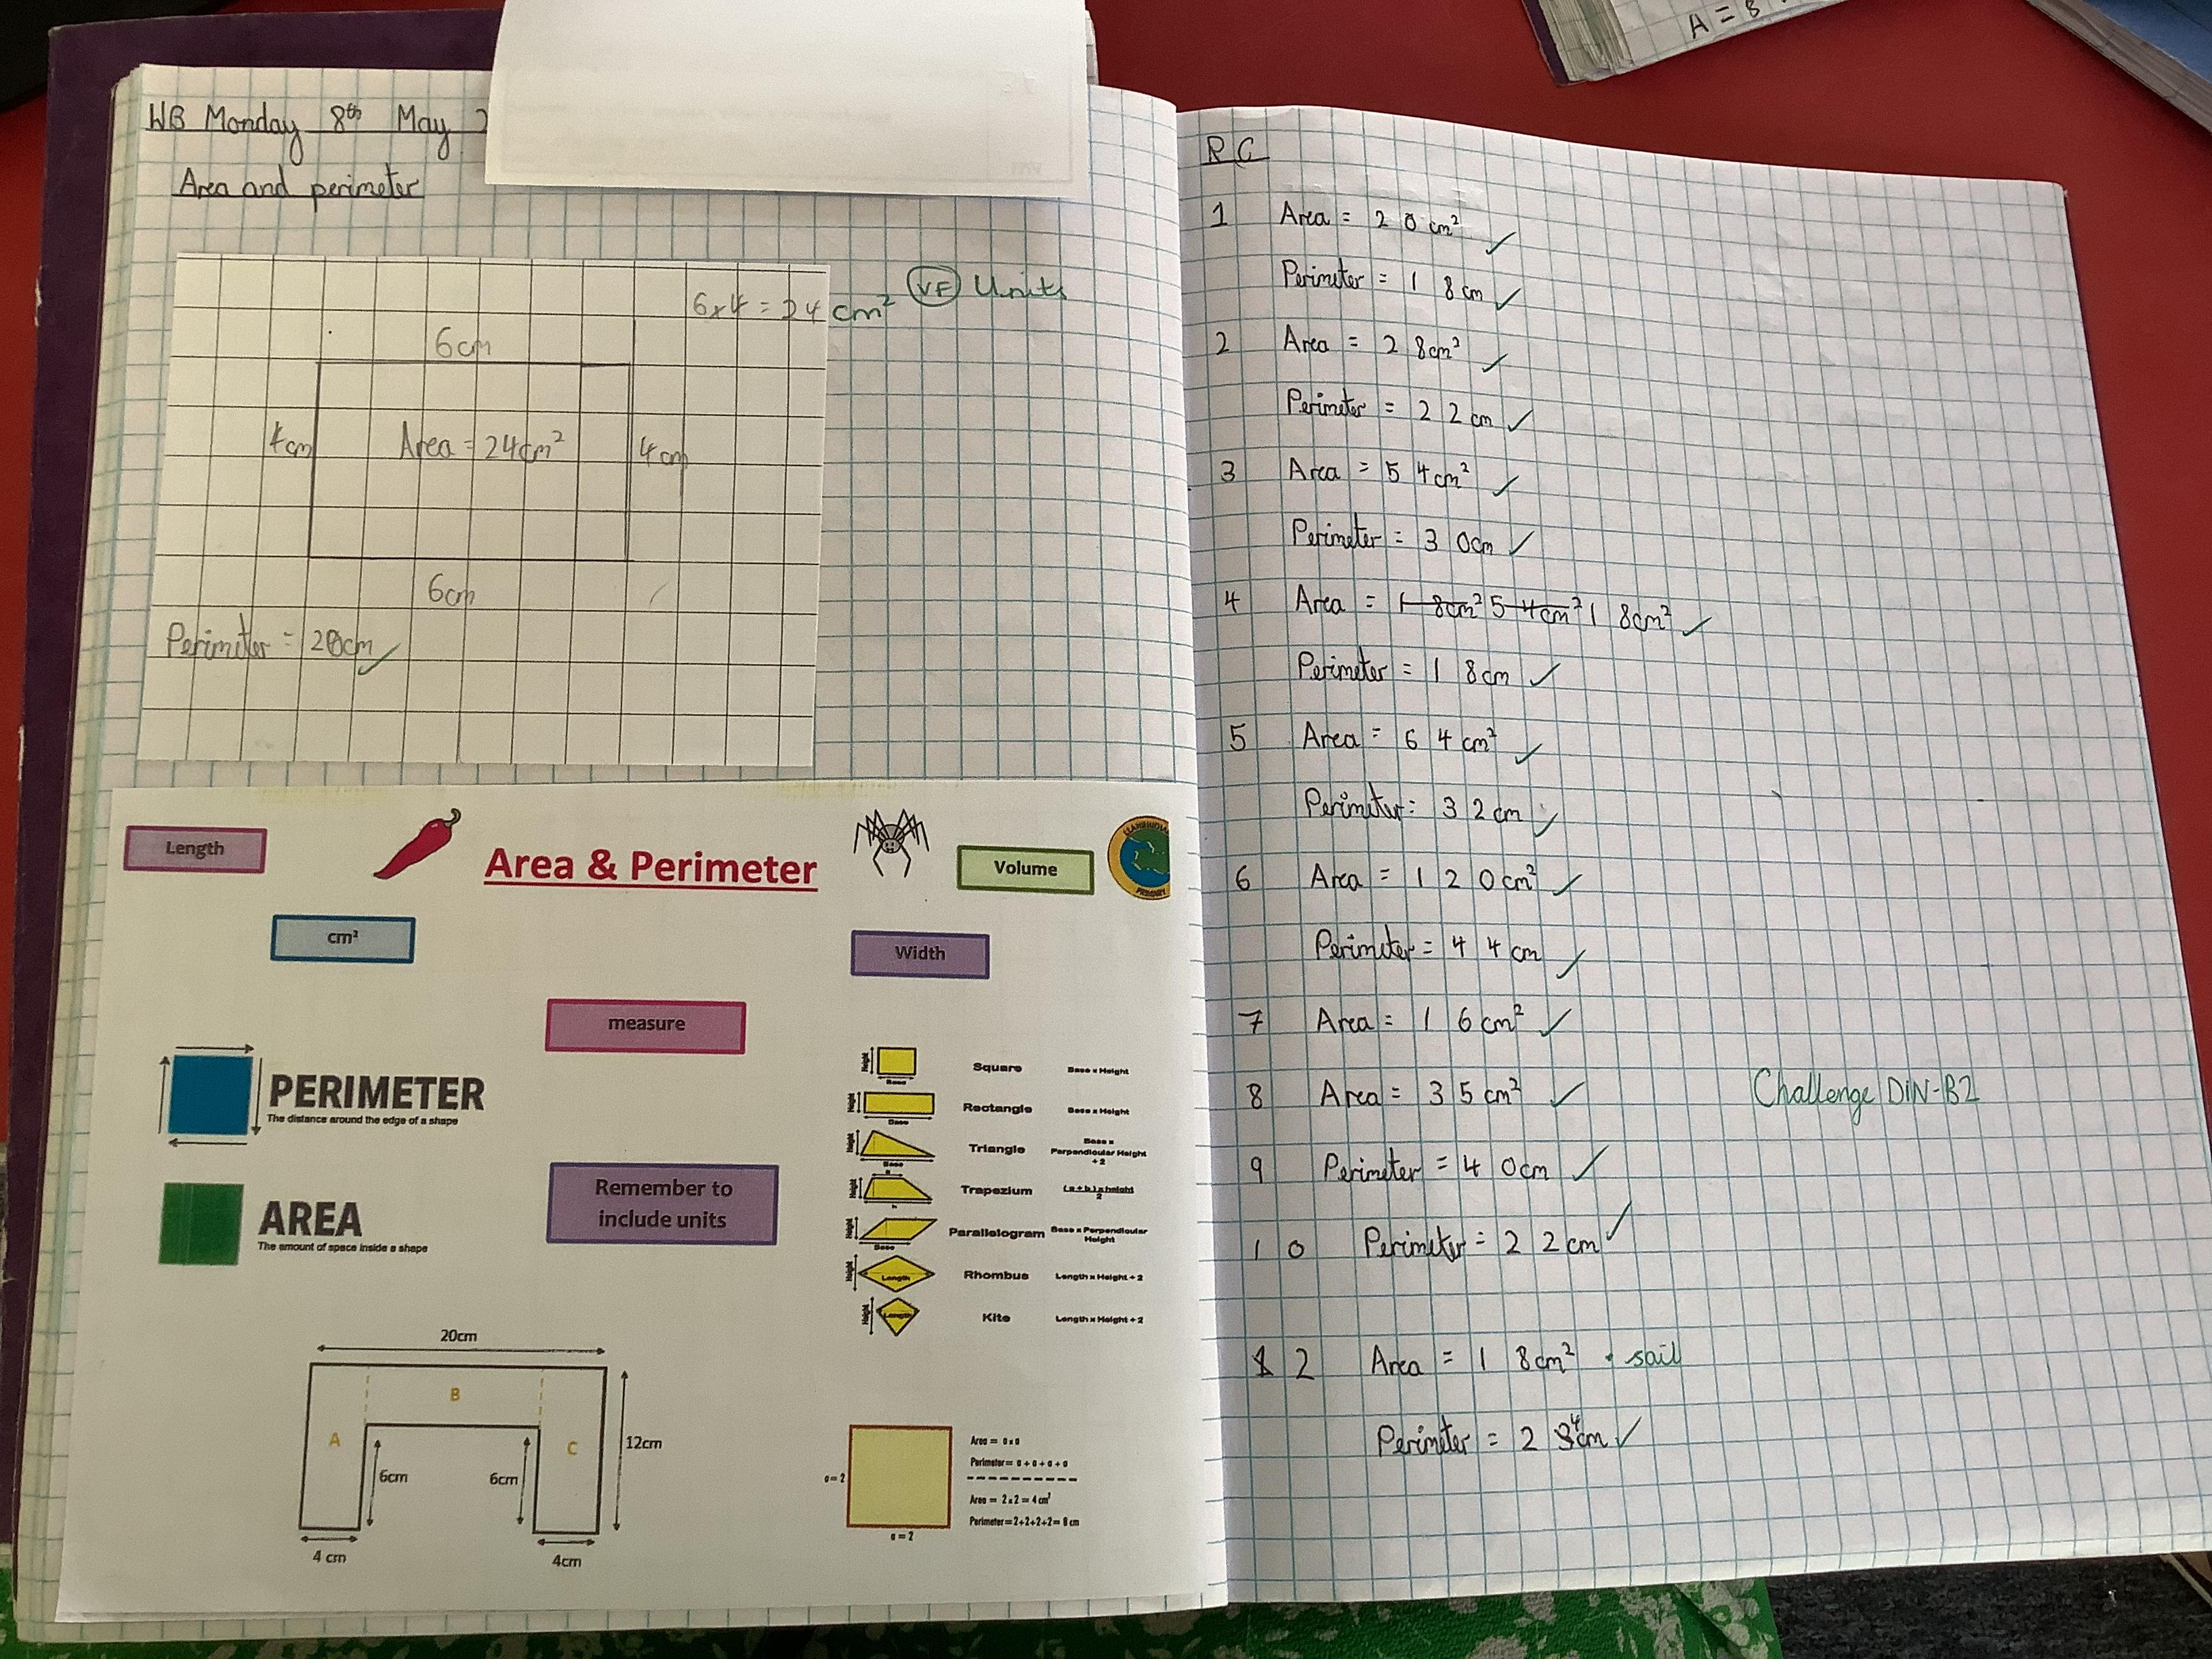 WB Monday 8th May
Area and perimeter
6x4 = 24 cm² VF Units
6cm
4cm Area = 24cm² 4cm
6cm
Perimeter = 20cm
Length
Area & Perimeter
Volume
cm²
Width
measure
PERIMETER
The distance around the edge of a shape
AREA
The amount of space inside a shape
Remember to
include units
Height Base Square Base x Height
Height Base Rectangle Base x Height
Height Base Triangle Base x Perpendicular Height ÷ 2
Height Trapezium (a + b) x height
2
Height Base Parallelogram Base x Perpendicular Height
Height Length Rhombus Length x Height ÷ 2
Height Length Kite Length x Height ÷ 2
20cm
B
A C
12cm
6cm 6cm
4 cm 4cm
a = 2
a = 2
Area = a x a
Perimeter = a + a + a + a
Area = 2 x 2 = 4 cm²
Perimeter = 2+2+2+2 = 8 cm
RC
1 Area = 20cm²
Perimeter = 18cm
2 Area = 28cm²
Perimeter = 22cm
3 Area = 54cm²
Perimeter = 30cm
4 Area = 18cm² 54cm² 18cm²
Perimeter = 18cm
5 Area = 64cm²
Perimeter = 32cm
6 Area = 120cm²
Perimeter = 44cm
7 Area = 16cm²
8 Area = 35cm² Challenge DIN-B2
9 Perimeter = 40cm
10 Perimeter = 22cm
12 Area = 18cm² . sail
Perimeter = 24cm
A = 8